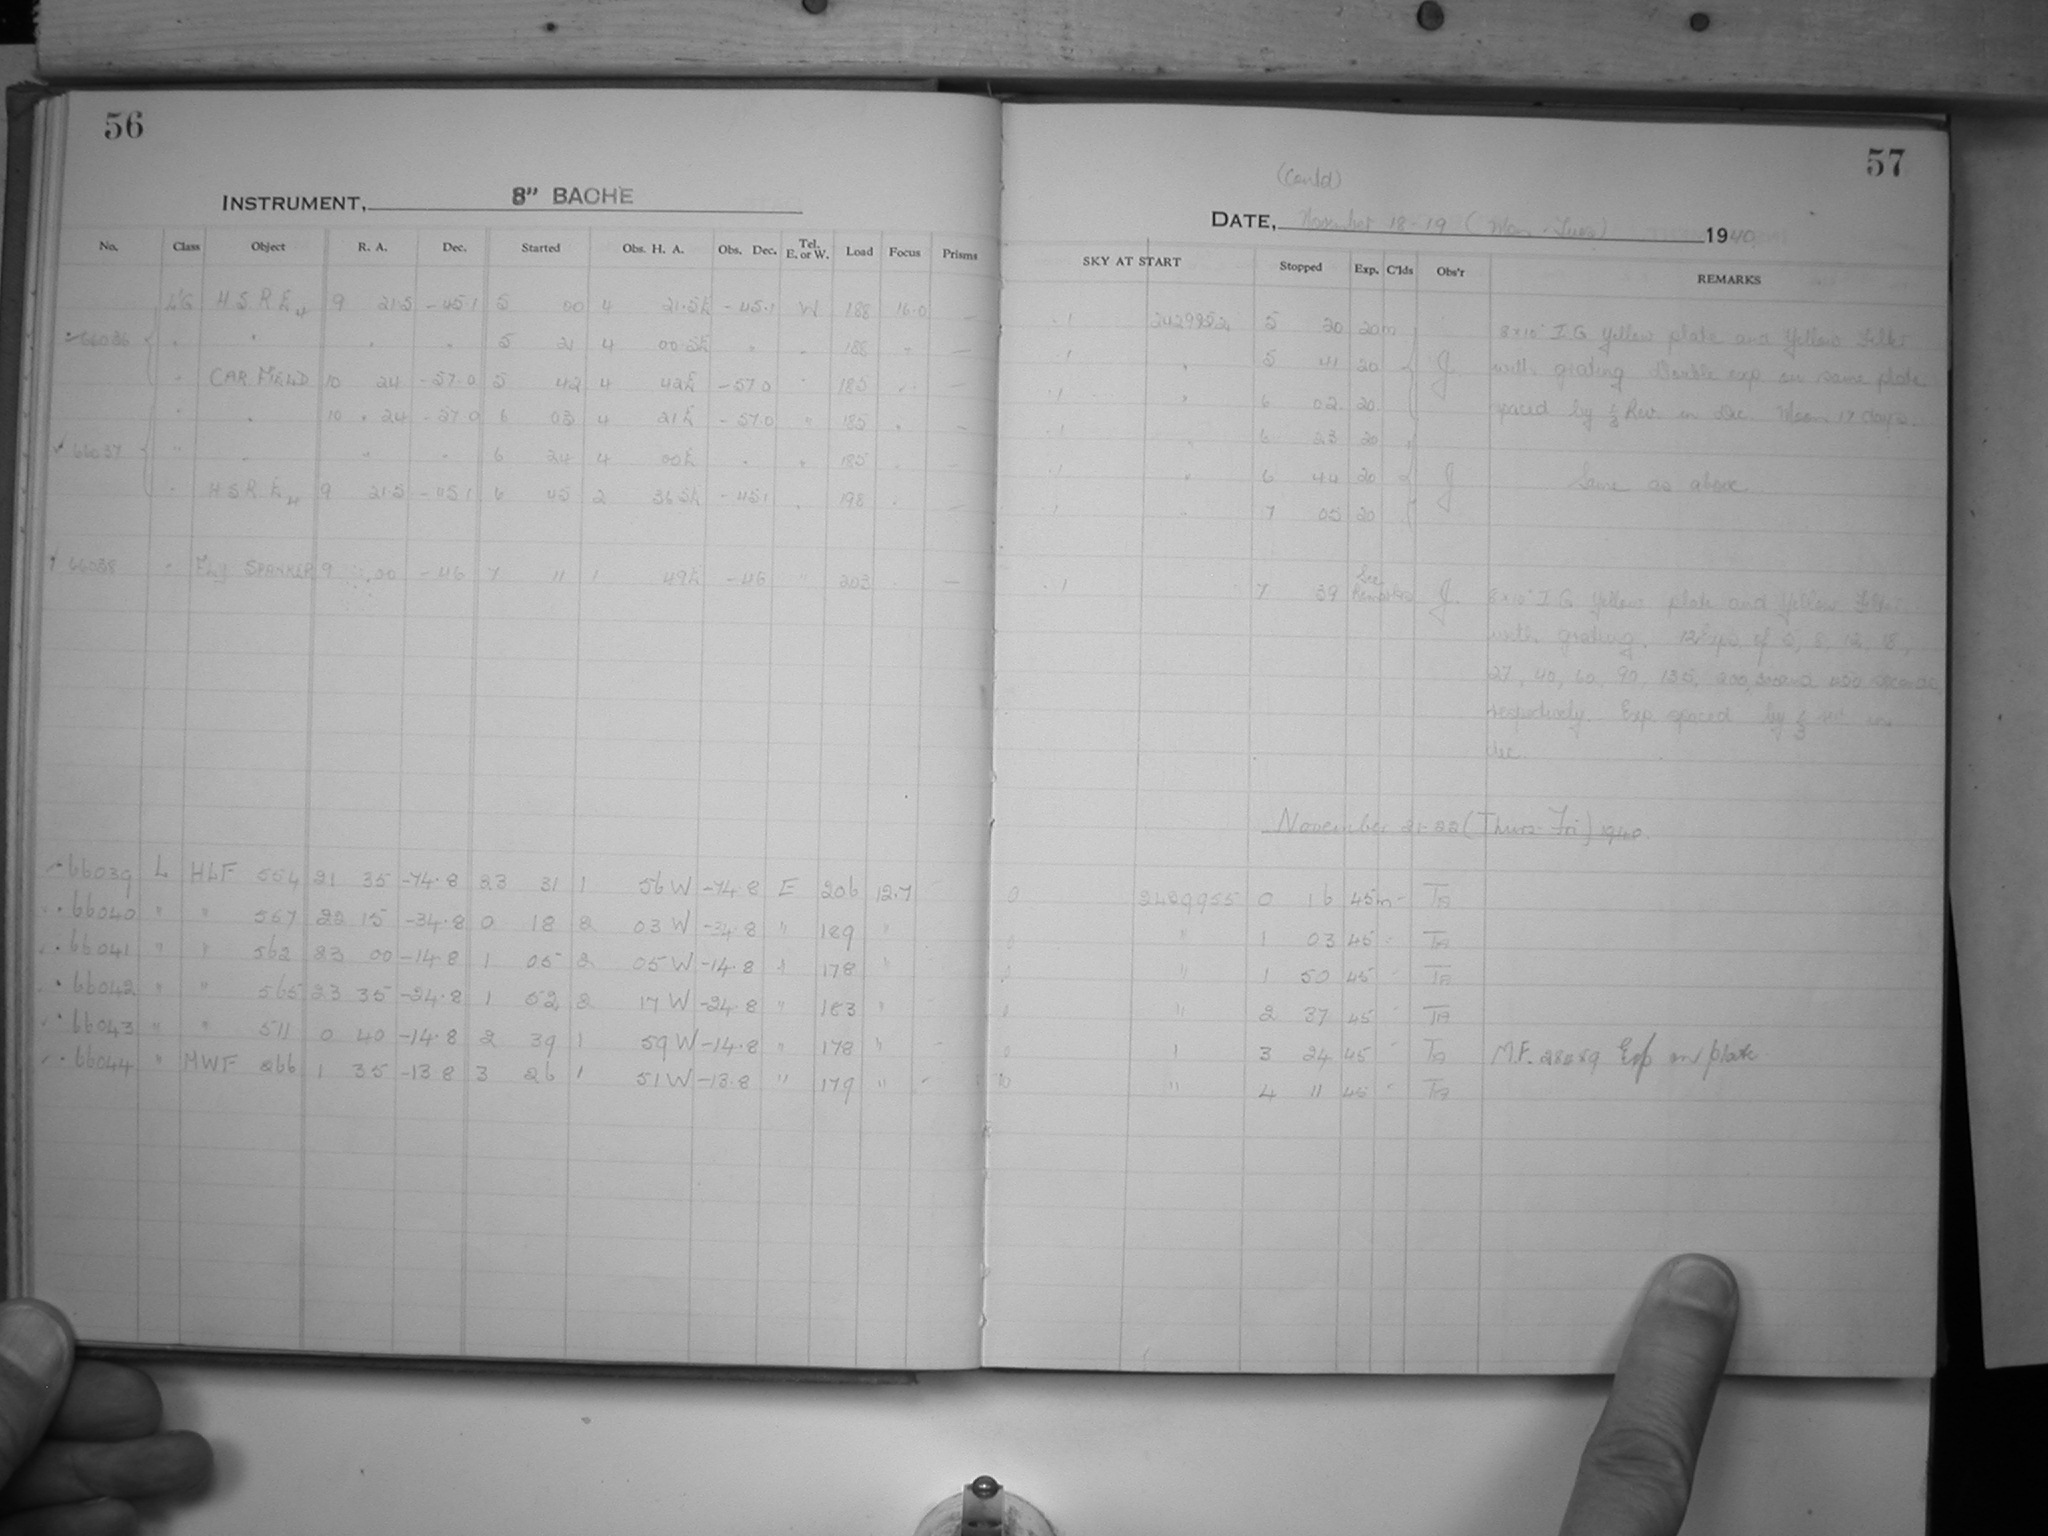 56
INSTRUMENT, 8" BACHE
No. Class Object R. A. Dec. Started Obs. H. A. Obs. Dec. Tel. E. or W. Load Focus Prisms
H S R E 9 21.5 -45.1 5 00 4 21.5E -45.1 W 188 16.0 —
66036 " " " " 5 21 4 00.5E " " 188 " —
" CAR FIELD 10 24 -57.0 5 42 4 42E -57.0 " 185 " —
" " 10 24 -57.0 6 03 4 21E -57.0 " 185 " —
66037 " " " " 6 24 4 00E " " 185 " —
" H S R E 9 21.5 -45.1 6 45 2 36.5E -45.1 " 198 " —
66038 " SPANNER 9 00 -46 7 11 1 49E -46 " 203 " —
66039 L HLF 554 21 35 -74.8 23 31 1 56 W -74.8 E 206 12.7
66040 " " 567 22 15 -34.8 0 18 2 03 W -34.8 " 189 "
66041 " " 562 23 00 -14.8 1 05 2 05 W -14.8 " 178 "
66042 " " 565 23 35 -24.8 1 52 2 17 W -24.8 " 183 "
66043 " " 511 0 40 -14.8 2 39 1 59 W -14.8 " 178 "
66044 " MWF 266 1 35 -13.8 3 26 1 51 W -13.8 " 179 "
57
(Contd)
DATE, November 18-19 (Mon-Tues) 1940
SKY AT START Stopped Exp. C'lds Obs'r REMARKS
.1 2429952 5 20 20m 8x10" I G Yellow plate and Yellow Filter
.1 " 5 41 20 J with grating Double exp on same plate
.1 " 6 02 20 spaced by ⅓ Rev. in Dec. Moon 19 days.
.1 " 6 23 20
.1 " 6 44 20 J Same as above
.1 " 7 05 20
.1 7 39 See Remarks J. 8x10" I G Yellow plate and Yellow Filter
with grating. 12 Exps of 5, 8, 12, 18,
27, 40, 60, 90, 135, 200, 300 and 450 seconds
respectively. Exp spaced by ⅓ rev in
Dec.
November 21-22 (Thurs-Fri) 1940.
0 2429955 0 16 45m - TA
0 " 1 03 45 - TA
0 " 1 50 45 - TA
0 " 2 37 45 - TA
0 " 3 24 45 - TA M.F. 28089 Exp on plate
0 " 4 11 45 - TA